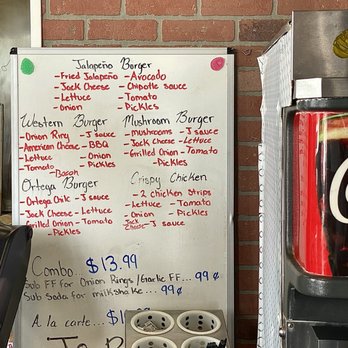 Jalapeño Burger
- Fried Jalapeño - Avocado
- Jack Cheese - Chipotle sauce
- Lettuce - Tomato
- Onion - Pickles
Western Burger
- Onion Ring - J sauce
- American Cheese - BBQ
- Lettuce - Onion
- Tomato - Pickles
- Bacon
Mushroom Burger
- mushrooms - J sauce
- Jack Cheese - Lettuce
- Grilled Onion - Tomato
- Pickles
Ortega Burger
- Jack Cheese - Lettuce
- Grilled Onion - Tomato
- Pickles
Crispy Chicken
- 2 chicken strips
- Lettuce - Tomato
- Onion - Pickles
- Jack Cheese - J sauce
Combo $13.99
Sub FF for Onion Rings/Garlic FF... 99¢
Sub Soda for milkshake... 99¢
A la carte...